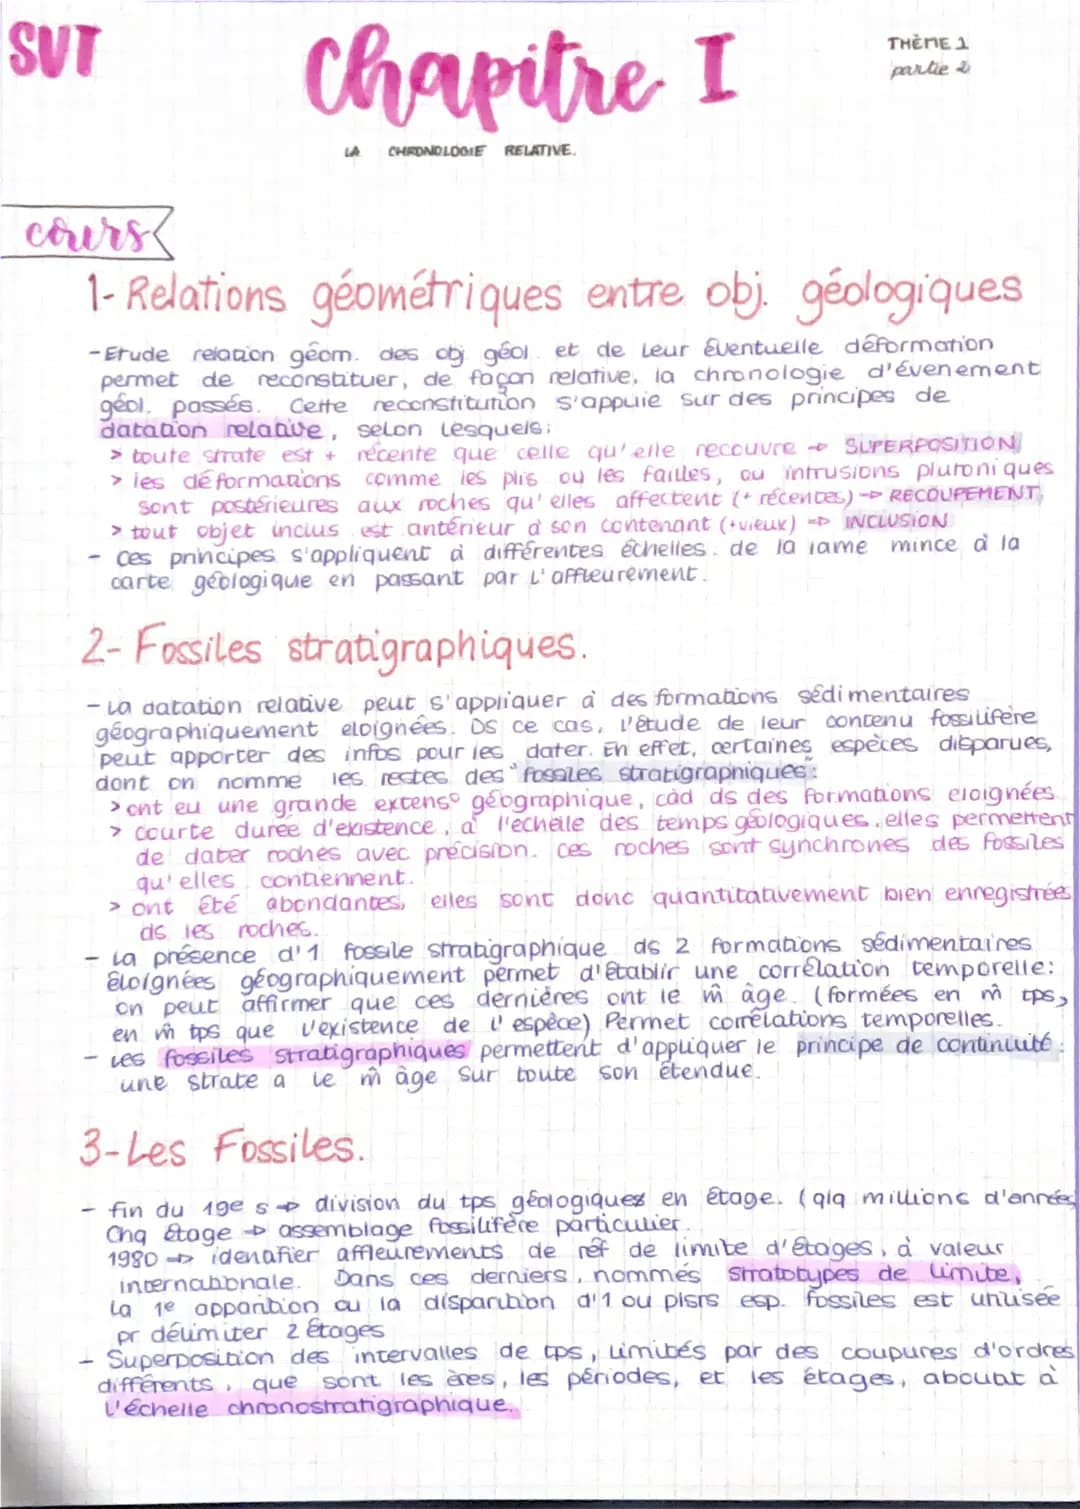 SVT
Chapitre I
THÈME 1
partie 2
LA CHRONOLOGIE RELATIVE.
cours
1- Relations géométriques entre obj. géologiques
- Etude relation géom. des obj géol. et de leur éventuelle déformation
permet de reconstituer, de façon relative, la chronologie d'évenement
géol. passés. Cette reconstitution s'appuie sur des principes de
datation relative, selon lesquels:
> toute strate est + récente que celle qu'elle reccuvre → SUPERPOSITION
> les déformations comme les plis ou les failles, ou intrusions plutoniques
sont postérieures aux roches qu'elles affectent (+ récentes) → RECOUPEMENT
> tout objet inclus est antérieur à son contenant (+vieux) → INCLUSION
- ces principes s'appliquent à différentes échelles. de la lame mince à la
carte géologique en passant par l'affleurement.
2- Fossiles stratigraphiques.
- La datation relative peut s'appliquer à des formations sédimentaires
géographiquement eloignées. DS ce cas, l'étude de leur contenu fossilifère
peut apporter des infos pour les dater. En effet, certaines espèces disparues,
dont on nomme les restes des "fossiles stratigraphiques":
> ont eu une grande extens° géographique, càd ds des formations eloignées
> courte durée d'existence, à l'echelle des temps géologiques. elles permettent
de dater roches avec précision. ces roches sont synchrones des fossiles
qu'elles contiennent.
> ont été abondantes, elles sont donc quantitativement bien enregistrées
ds les roches.
- La présence d'1 fossile stratigraphique ds 2 formations sédimentaires
éloignées géographiquement permet d'établir une corrélation temporelle:
on peut affirmer que ces dernières ont le m̂ âge. (formées en m̂ tps,
en m̂ tps que l'existence de l'espèce) Permet corrélations temporelles.
- Les fossiles stratigraphiques permettent d'appliquer le principe de continuité:
une strate a le m̂ âge sur toute son étendue.
3- Les Fossiles.
- fin du 19e s → division du tps géologiques en étage. (qlq millions d'années
Chq étage → assemblage fossilifère particulier.
1980 → identifier affleurements de réf de limite d'étages, à valeur
internationale. Dans ces derniers, nommés stratotypes de limite,
la 1e apparition ou la disparition d'1 ou plsrs esp. fossiles est utilisée
pr délimiter 2 étages
- Superposition des intervalles de tps, limités par des coupures d'ordres
différents, que sont les ères, les périodes, et les étages, aboutit à
l'échelle chronostratigraphique.